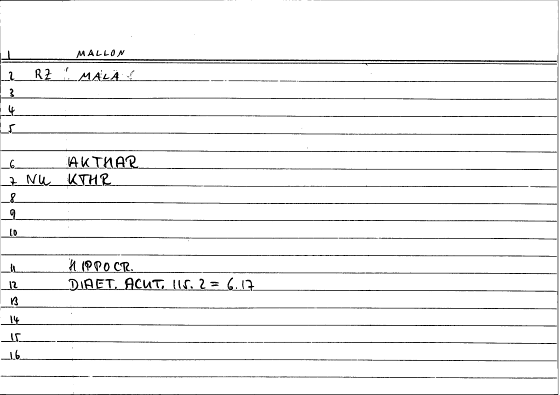 1 MALLON
2 RZ ' MALA '
3
4
5
6 AKTHAR
7 NU KTHR
8
9
10
11 HIPPOCR.
12 DIAET. ACUT. 115. 2 = 6.17
13
14
15
16